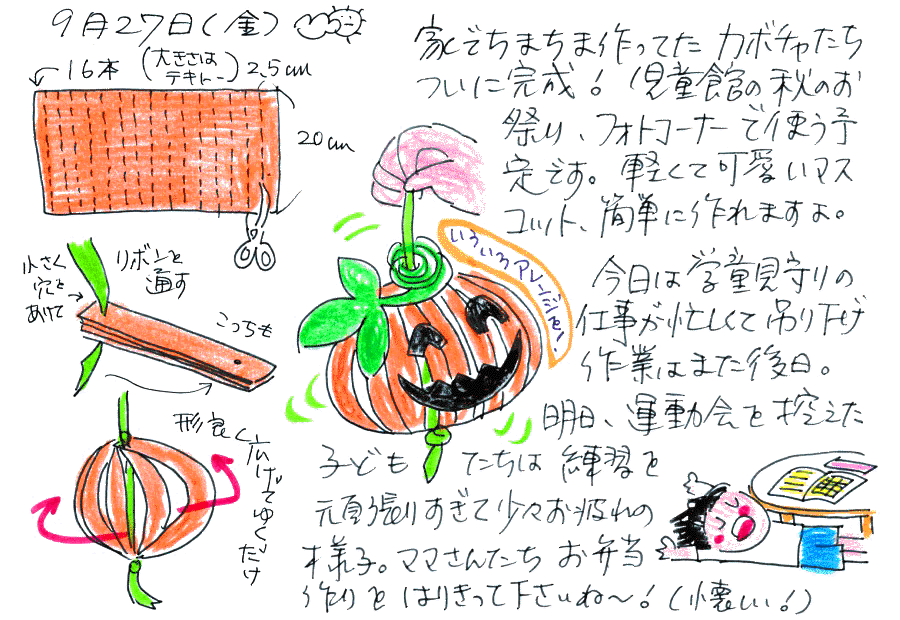 9月27日(金)
16本
(大きさは
テキトー)
2.5cm
20cm
小さく
穴を
あけて
リボンを
通す
こっちも
形良く
広げてゆくだけ
いろ
いろアレンジを!
家でちまちま作ってた カボチャたち
ついに完成! 児童館の秋のお
祭り、フォトコーナーで使う予
定です。軽くて可愛いマス
コット、簡単に作れますよ。
今日は学童見守りの
仕事が忙しくて吊り下げ
作業はまた後日。
明日、運動会を控えた
子どもたちは練習を
頑張りすぎて少々お疲れの
様子。ママさんたち お弁当
作りをはりきって下さいね〜!(懐しい!)